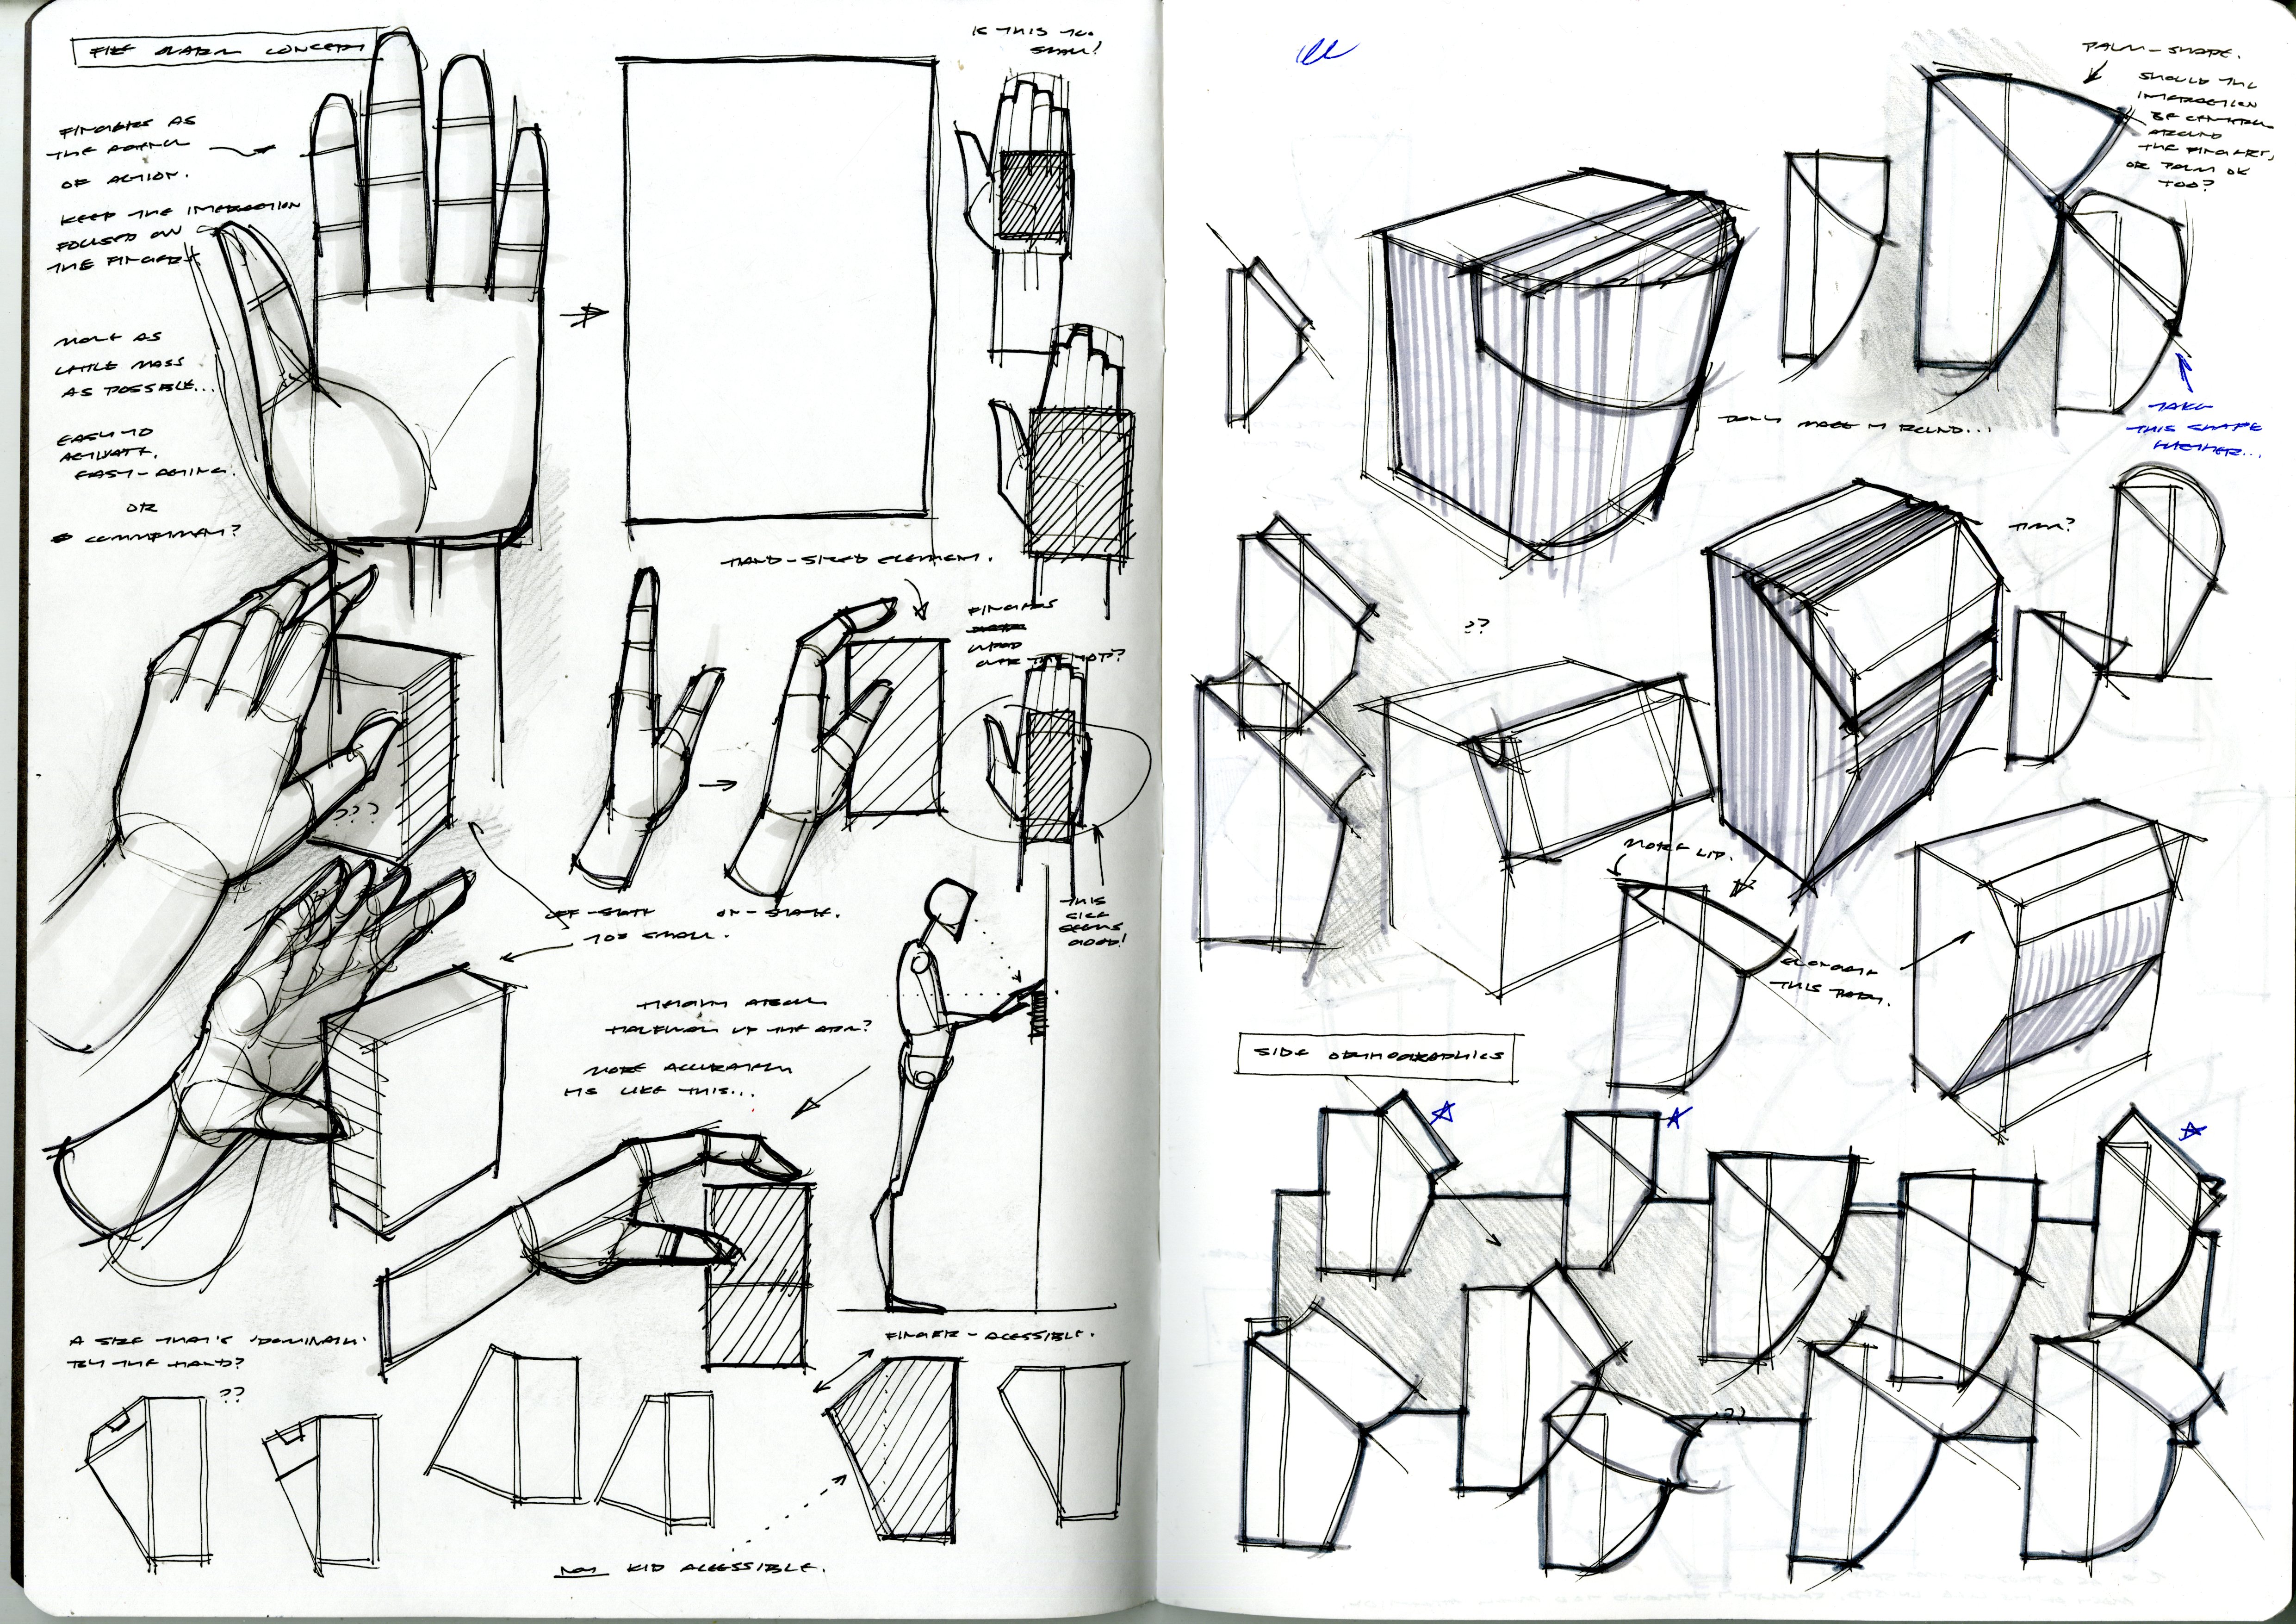 FIRE ALARM CONCEPT
FINGERS AS
THE AGENCY
OF ACTION.
KEEP THE INTERACTION
FOCUSED ON
THE FINGERS.
MOVE AS
LITTLE MASS
AS POSSIBLE...
EASY TO
ACTIVATE.
EASY-ACTING.
OR
COMMITMENT?
IS THIS TOO
SMALL!
HAND-SIZED ELEMENT.
FINGERS
WRAP
OVER THE TOP?
???
OFF-STATE
ON-STATE.
TOO SMALL.
THIS
SIZE
SEEMS
GOOD!
HEIGHT ABOUT
HALFWAY UP THE ARM?
MORE ACCURATELY
IT'S LIKE THIS...
A SIZE THAT'S 'DOMINATED'
BY THE HAND?
??
FINGER-ACESSIBLE.
NOT KID ACESSIBLE.
PALM-SHAPE.
SHOULD THE
INTERACTION
BE CENTERED
AROUND
THE FINGERS,
OR PALM OK
TOO?
DON'T MAKE IT ROUND...
TAKE
THIS SHAPE
FURTHER...
??
MORE LIP.
ELONGATE
THIS PART.
SIDE ORTHOGRAPHICS
??